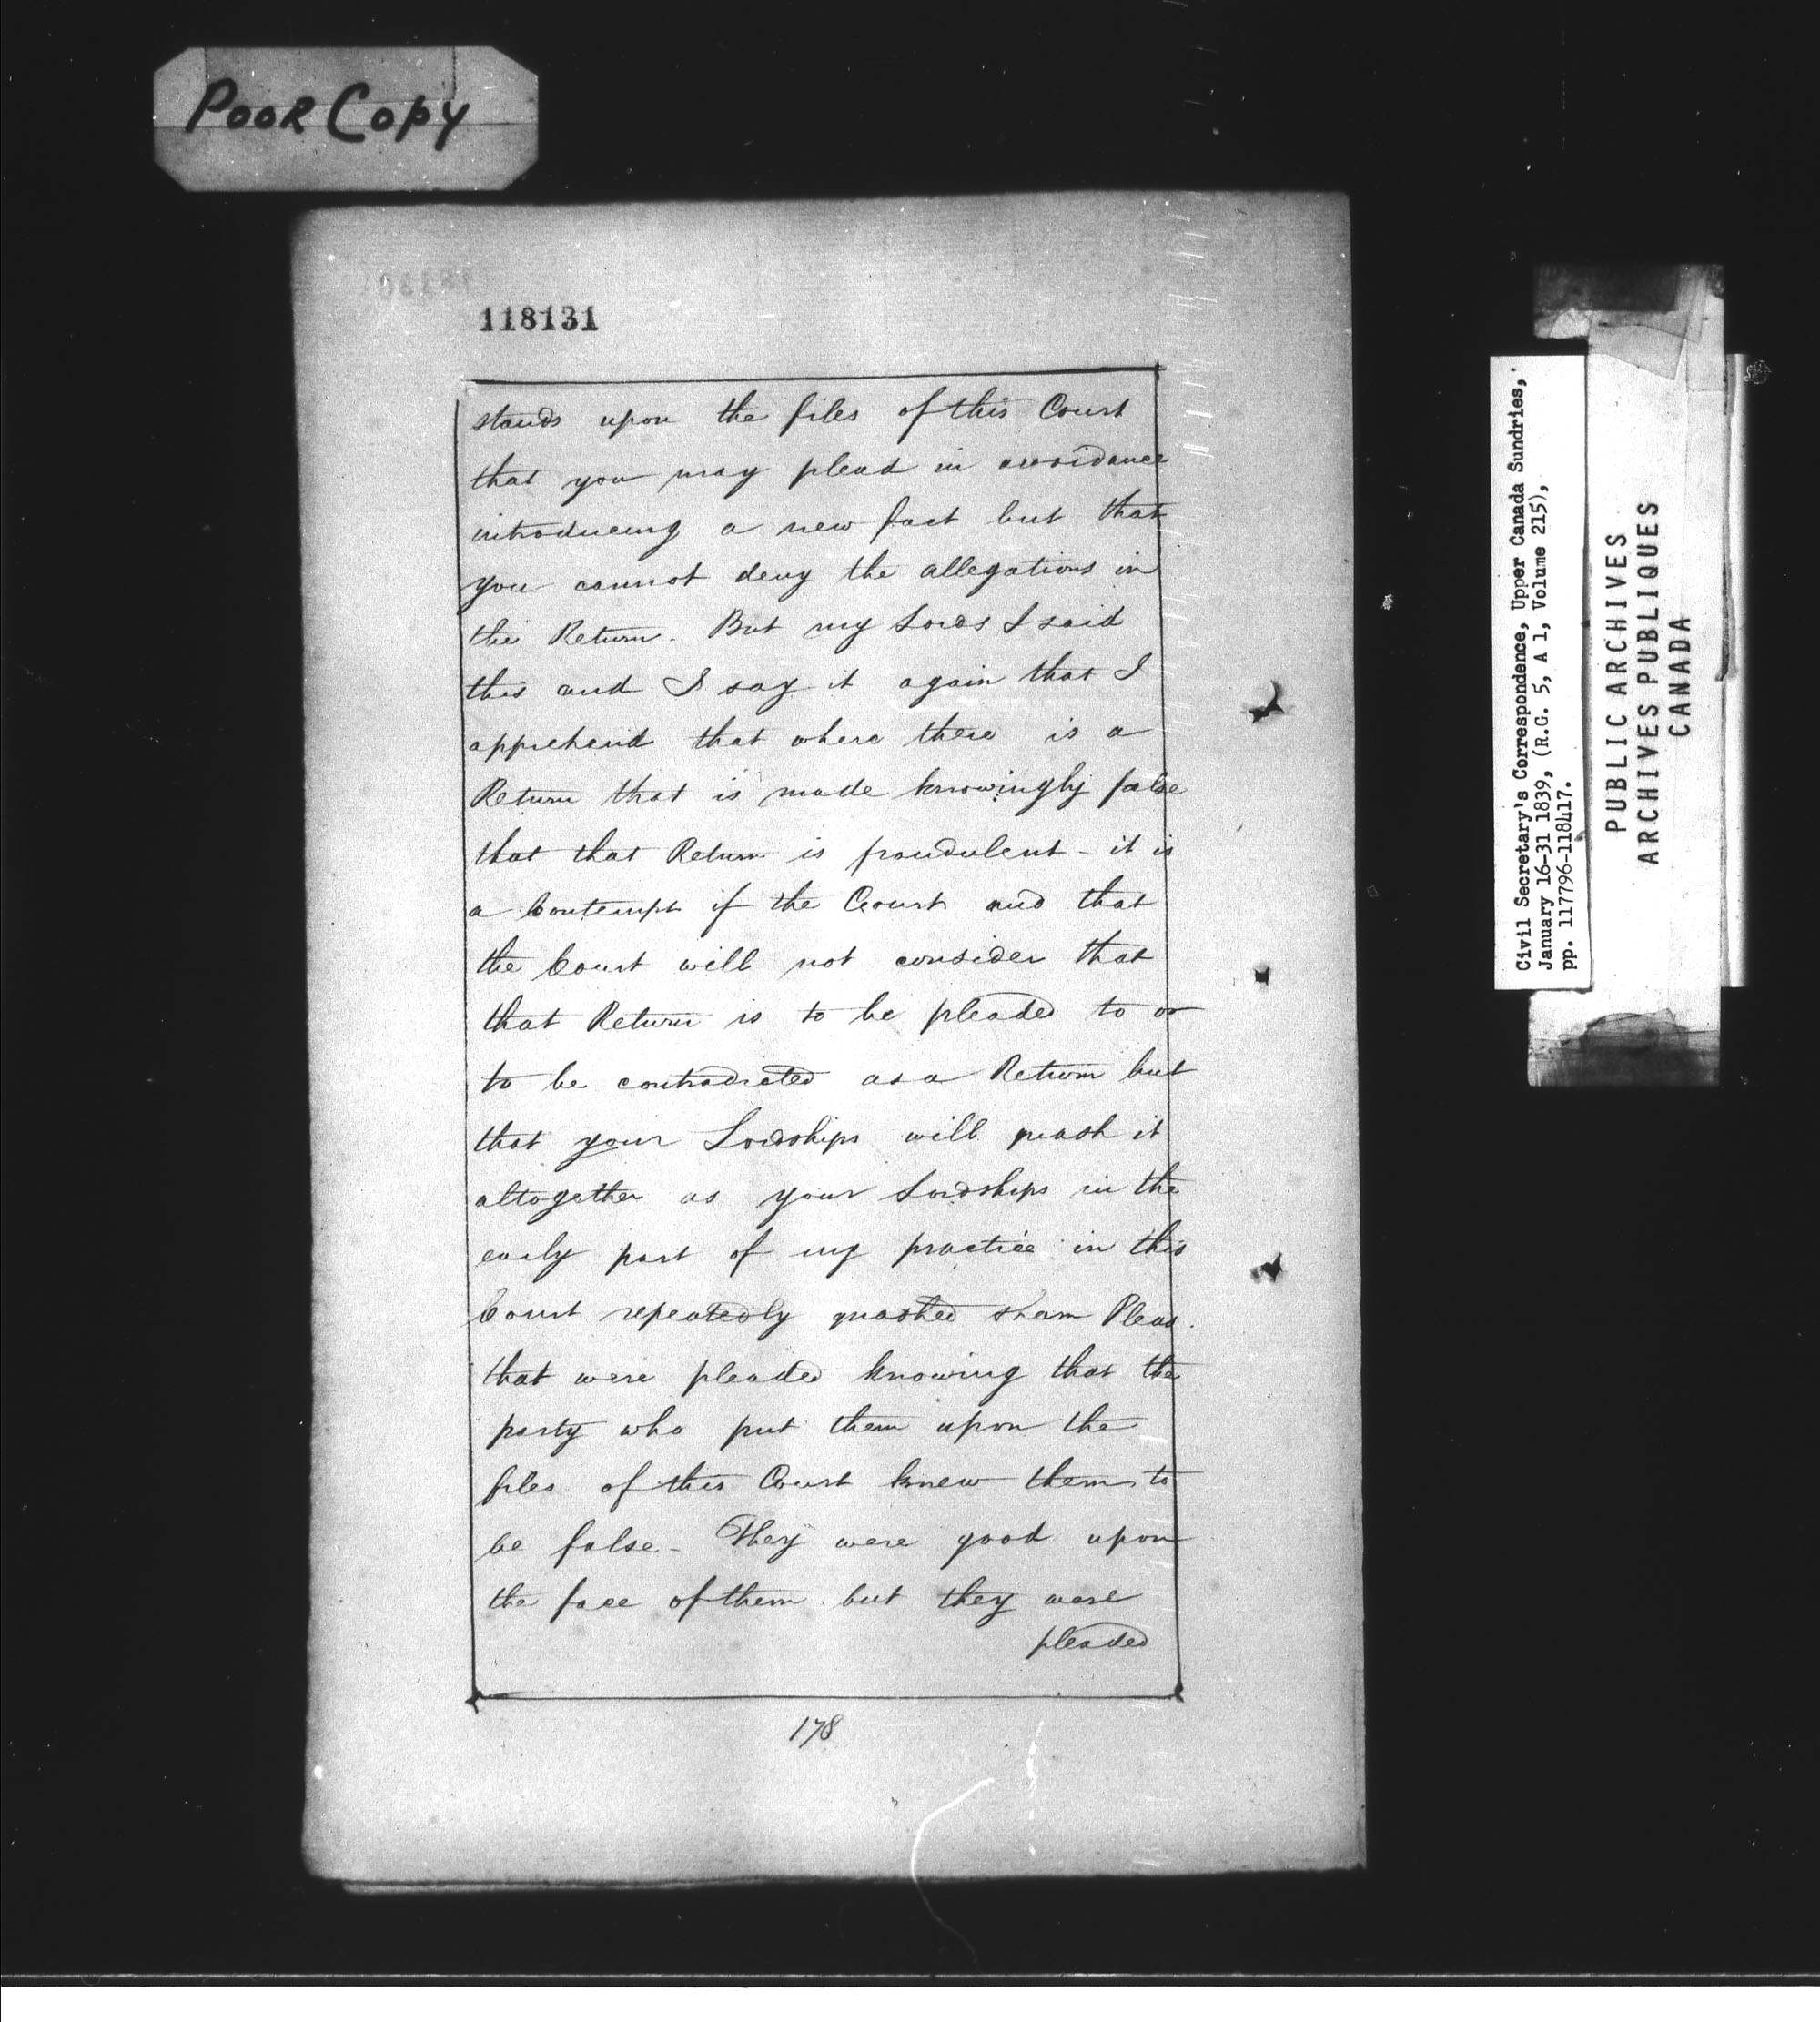 POOR COPY
118131
stands upon the files of this Court
that you may plead in avoidance
introducing a new fact but that
you cannot deny the allegations in
the Return. But my Lords I said
this and I say it again that I
apprehend that where there is a
Return that is made knowingly false
that that Return is fraudulent - it is
a Contempt if the Court and that
the Court will not consider that
that Return is to be pleaded to or
to be contradicted as a Return but
that your Lordships will quash it
altogether as your Lordships in the
early part of my practice in this
Court repeatedly quashed sham Pleas.
that were pleaded knowing that the
party who put them upon the
files of this Court knew them to
be false - They were good upon
the face of them but they were
pleaded
178
Civil Secretary's Correspondence, Upper Canada Sundries,
January 16-31 1839, (R.G. 5, A 1, Volume 215),
pp. 117796-118417.
PUBLIC ARCHIVES
ARCHIVES PUBLIQUES
CANADA